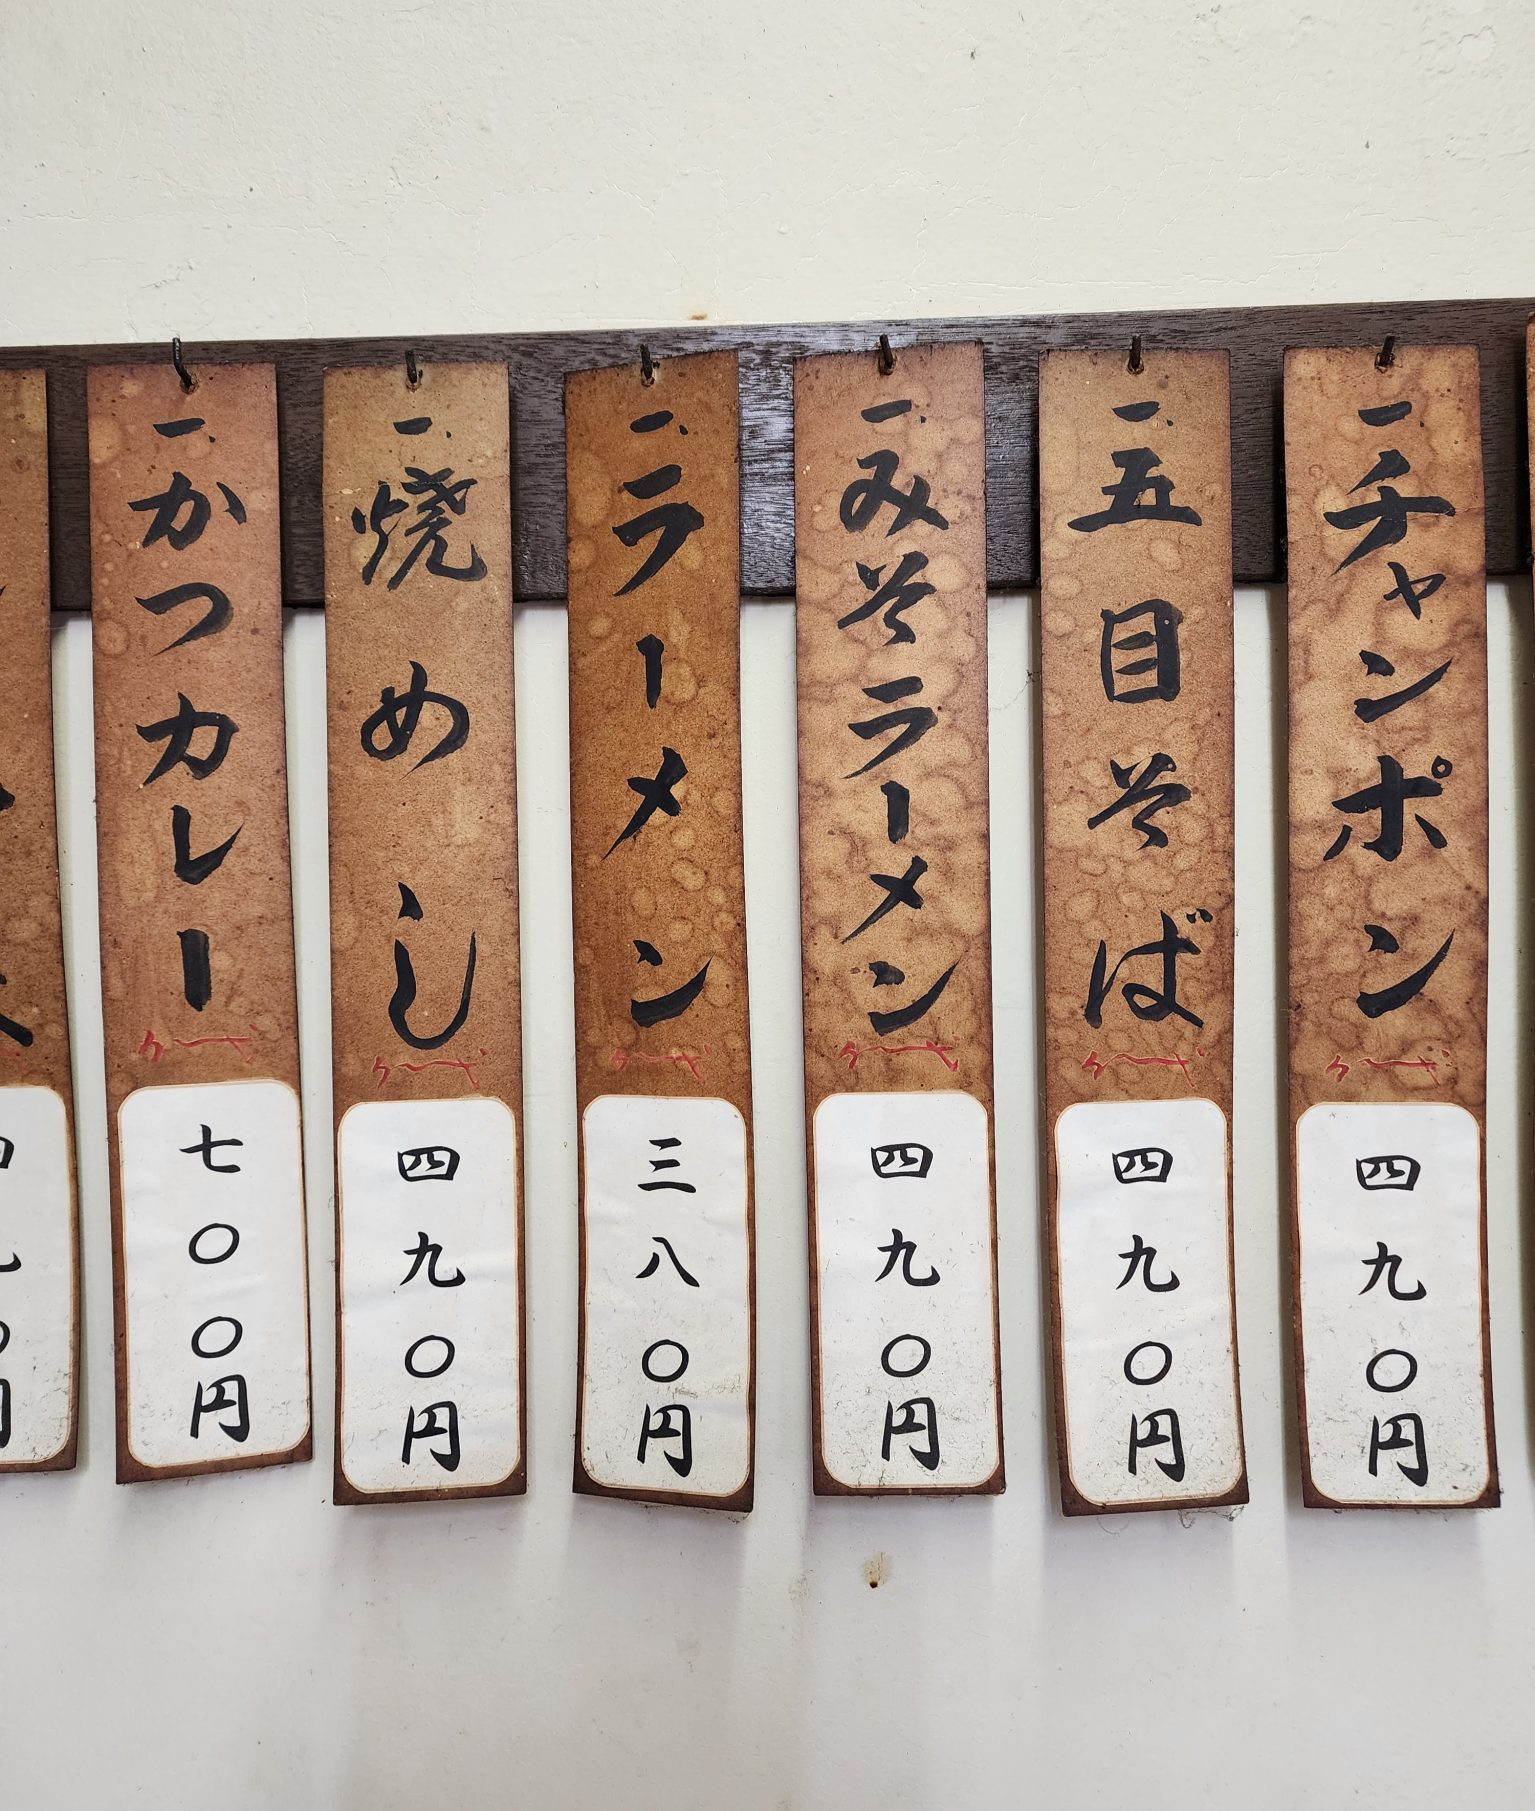 一、チャンポン
四九〇円
一、五目そば
四九〇円
一、みそラーメン
四九〇円
一、ラーメン
三八〇円
一、焼めし
四九〇円
一、かつカレー
七〇〇円